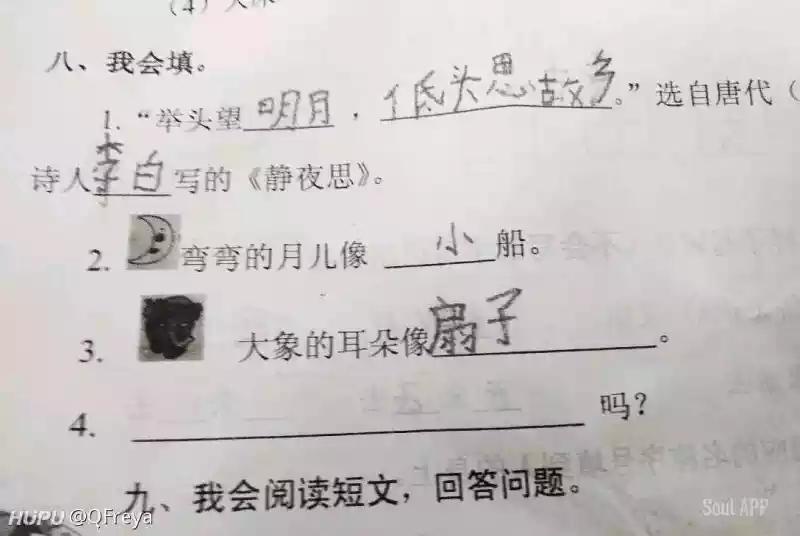 (4)
八、我会填。
1. “举头望明月，低头思故乡。”选自唐代（
诗人李白写的《静夜思》。
2. 弯弯的月儿像 小 船。
3. 大象的耳朵像扇子。
4. 吗？
九、我会阅读短文，回答问题。
HUPU @QFreya
Soul APP